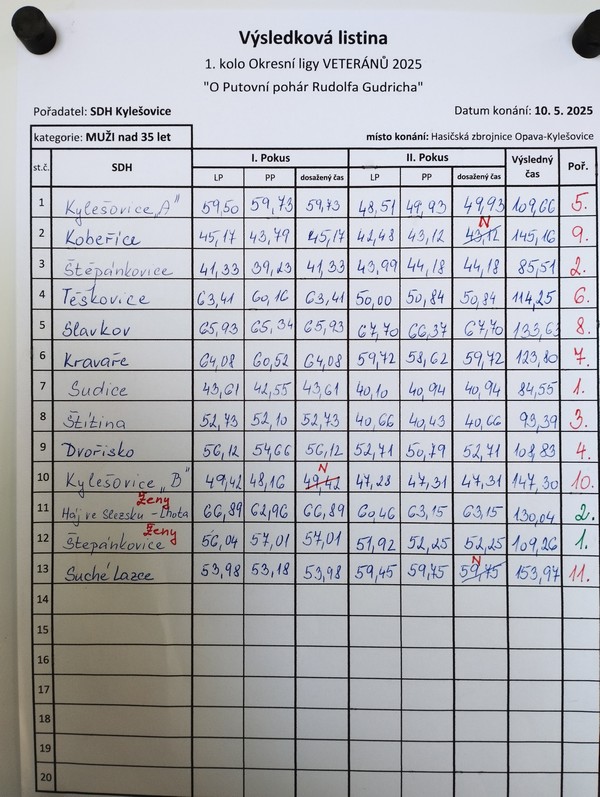 Výsledková listina
1. kolo Okresní ligy VETERÁNŮ 2025
"O Putovní pohár Rudolfa Gudricha"
Pořadatel: SDH Kylešovice Datum konání: 10. 5. 2025
kategorie: MUŽI nad 35 let místo konání: Hasičská zbrojnice Opava-Kylešovice
st.č. SDH I. Pokus II. Pokus Výsledný čas Poř.
LP PP dosažený čas LP PP dosažený čas
1 Kylešovice „A" 59,50 59,73 59,73 48,51 49,93 49,93 109,66 5.
2 Kobeřice 45,17 43,79 45,17 42,48 43,12 43,12 N 145,16 9.
3 Štěpánkovice 41,33 39,23 41,33 43,99 44,18 44,18 85,51 2.
4 Těškovice 63,41 60,16 63,41 50,00 50,84 50,84 114,25 6.
5 Slavkov 65,93 65,34 65,93 67,70 66,37 67,70 133,63 8.
6 Kravaře 64,08 60,52 64,08 59,72 58,62 59,72 123,80 7.
7 Sudice 43,61 42,55 43,61 40,10 40,94 40,94 84,55 1.
8 Štítina 52,73 52,10 52,73 40,66 40,43 40,66 93,39 3.
9 Dvořisko 56,12 54,66 56,12 52,71 50,79 52,71 108,83 4.
10 Kylešovice „B" 49,42 48,16 49,42 N 47,28 47,31 47,31 147,30 10.
11 Háj ve Slezsku - Lhota ženy 66,89 62,96 66,89 60,46 63,15 63,15 130,04 2.
12 Štěpánkovice ženy 56,04 57,01 57,01 51,92 52,25 52,25 109,26 1.
13 Suché Lazce 53,98 53,18 53,98 59,45 59,75 59,75 N 153,97 11.
14
15
16
17
18
19
20